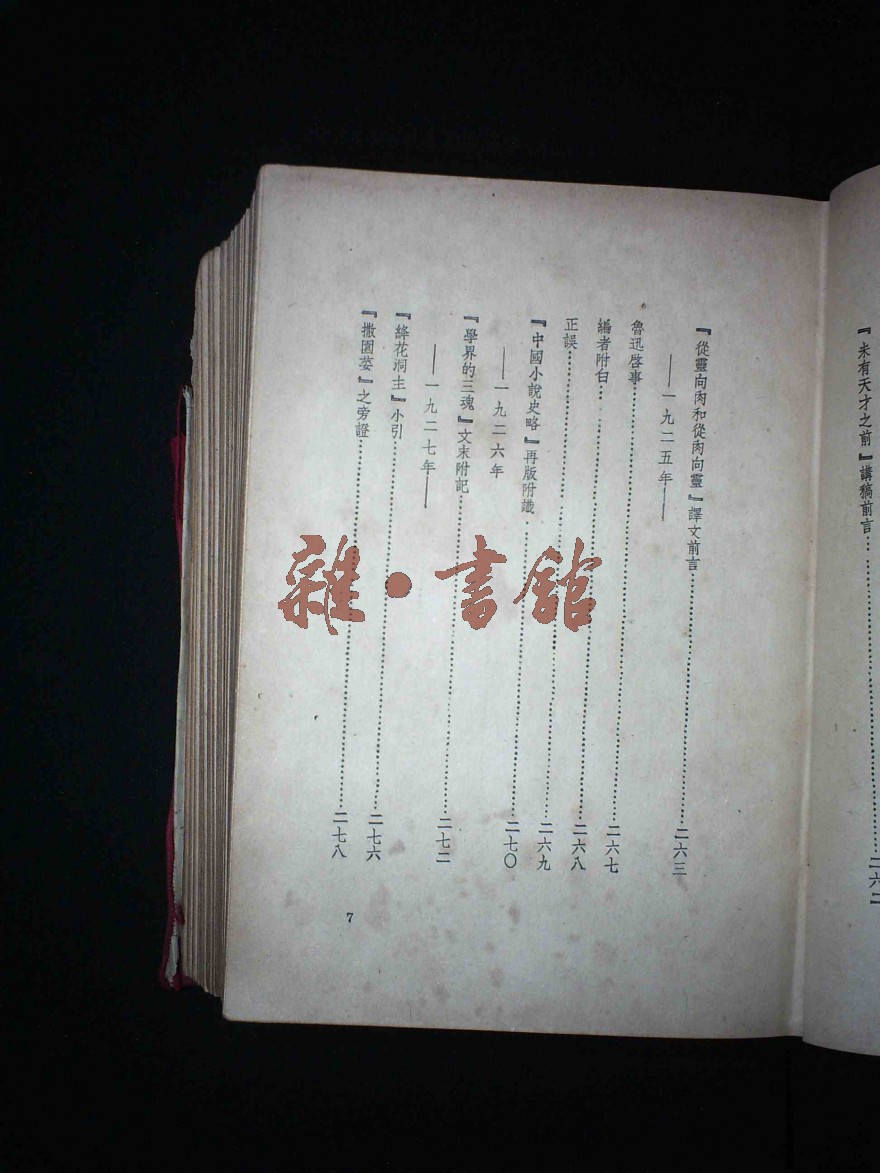 『未有天才之前』講稿前言……二六二
『從靈向肉和從肉向靈』譯文前言……二六三
——一九二五年——
魯迅啓事……二六七
編者附白……二六八
正誤……二六九
『中國小說史略』再版附識……二七〇
——一九二六年
『學界的三魂』文末附記……二七二
——一九二七年——
『絳花洞主』小引……二七六
『撒園荽』之旁證……二七八
7
雜·書館